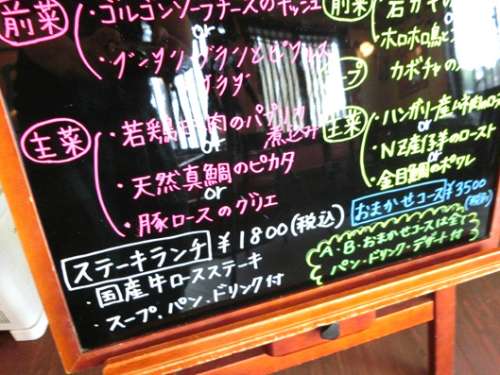 前菜
・ゴルゴンゾーラチーズのキッシュ
or
サラダ
主菜
・若鶏
肉のパプリカ
煮込み
or
・天然真鯛のピカタ
or
・豚ロースのグリエ
前菜
岩ガキの
or
ホロホロ鳥と
スープ
カボチャの
主菜
・ハンガリー産
or
・NZ産仔羊のロースト
or
・金目鯛のポワレ
おまかせコース ¥3500
(税込)
A・B・おまかせコースは全て
パン・ドリンク・デザート付
ステーキランチ ¥1800(税込)
・国産牛ロースステーキ
・スープ、パン、ドリンク付